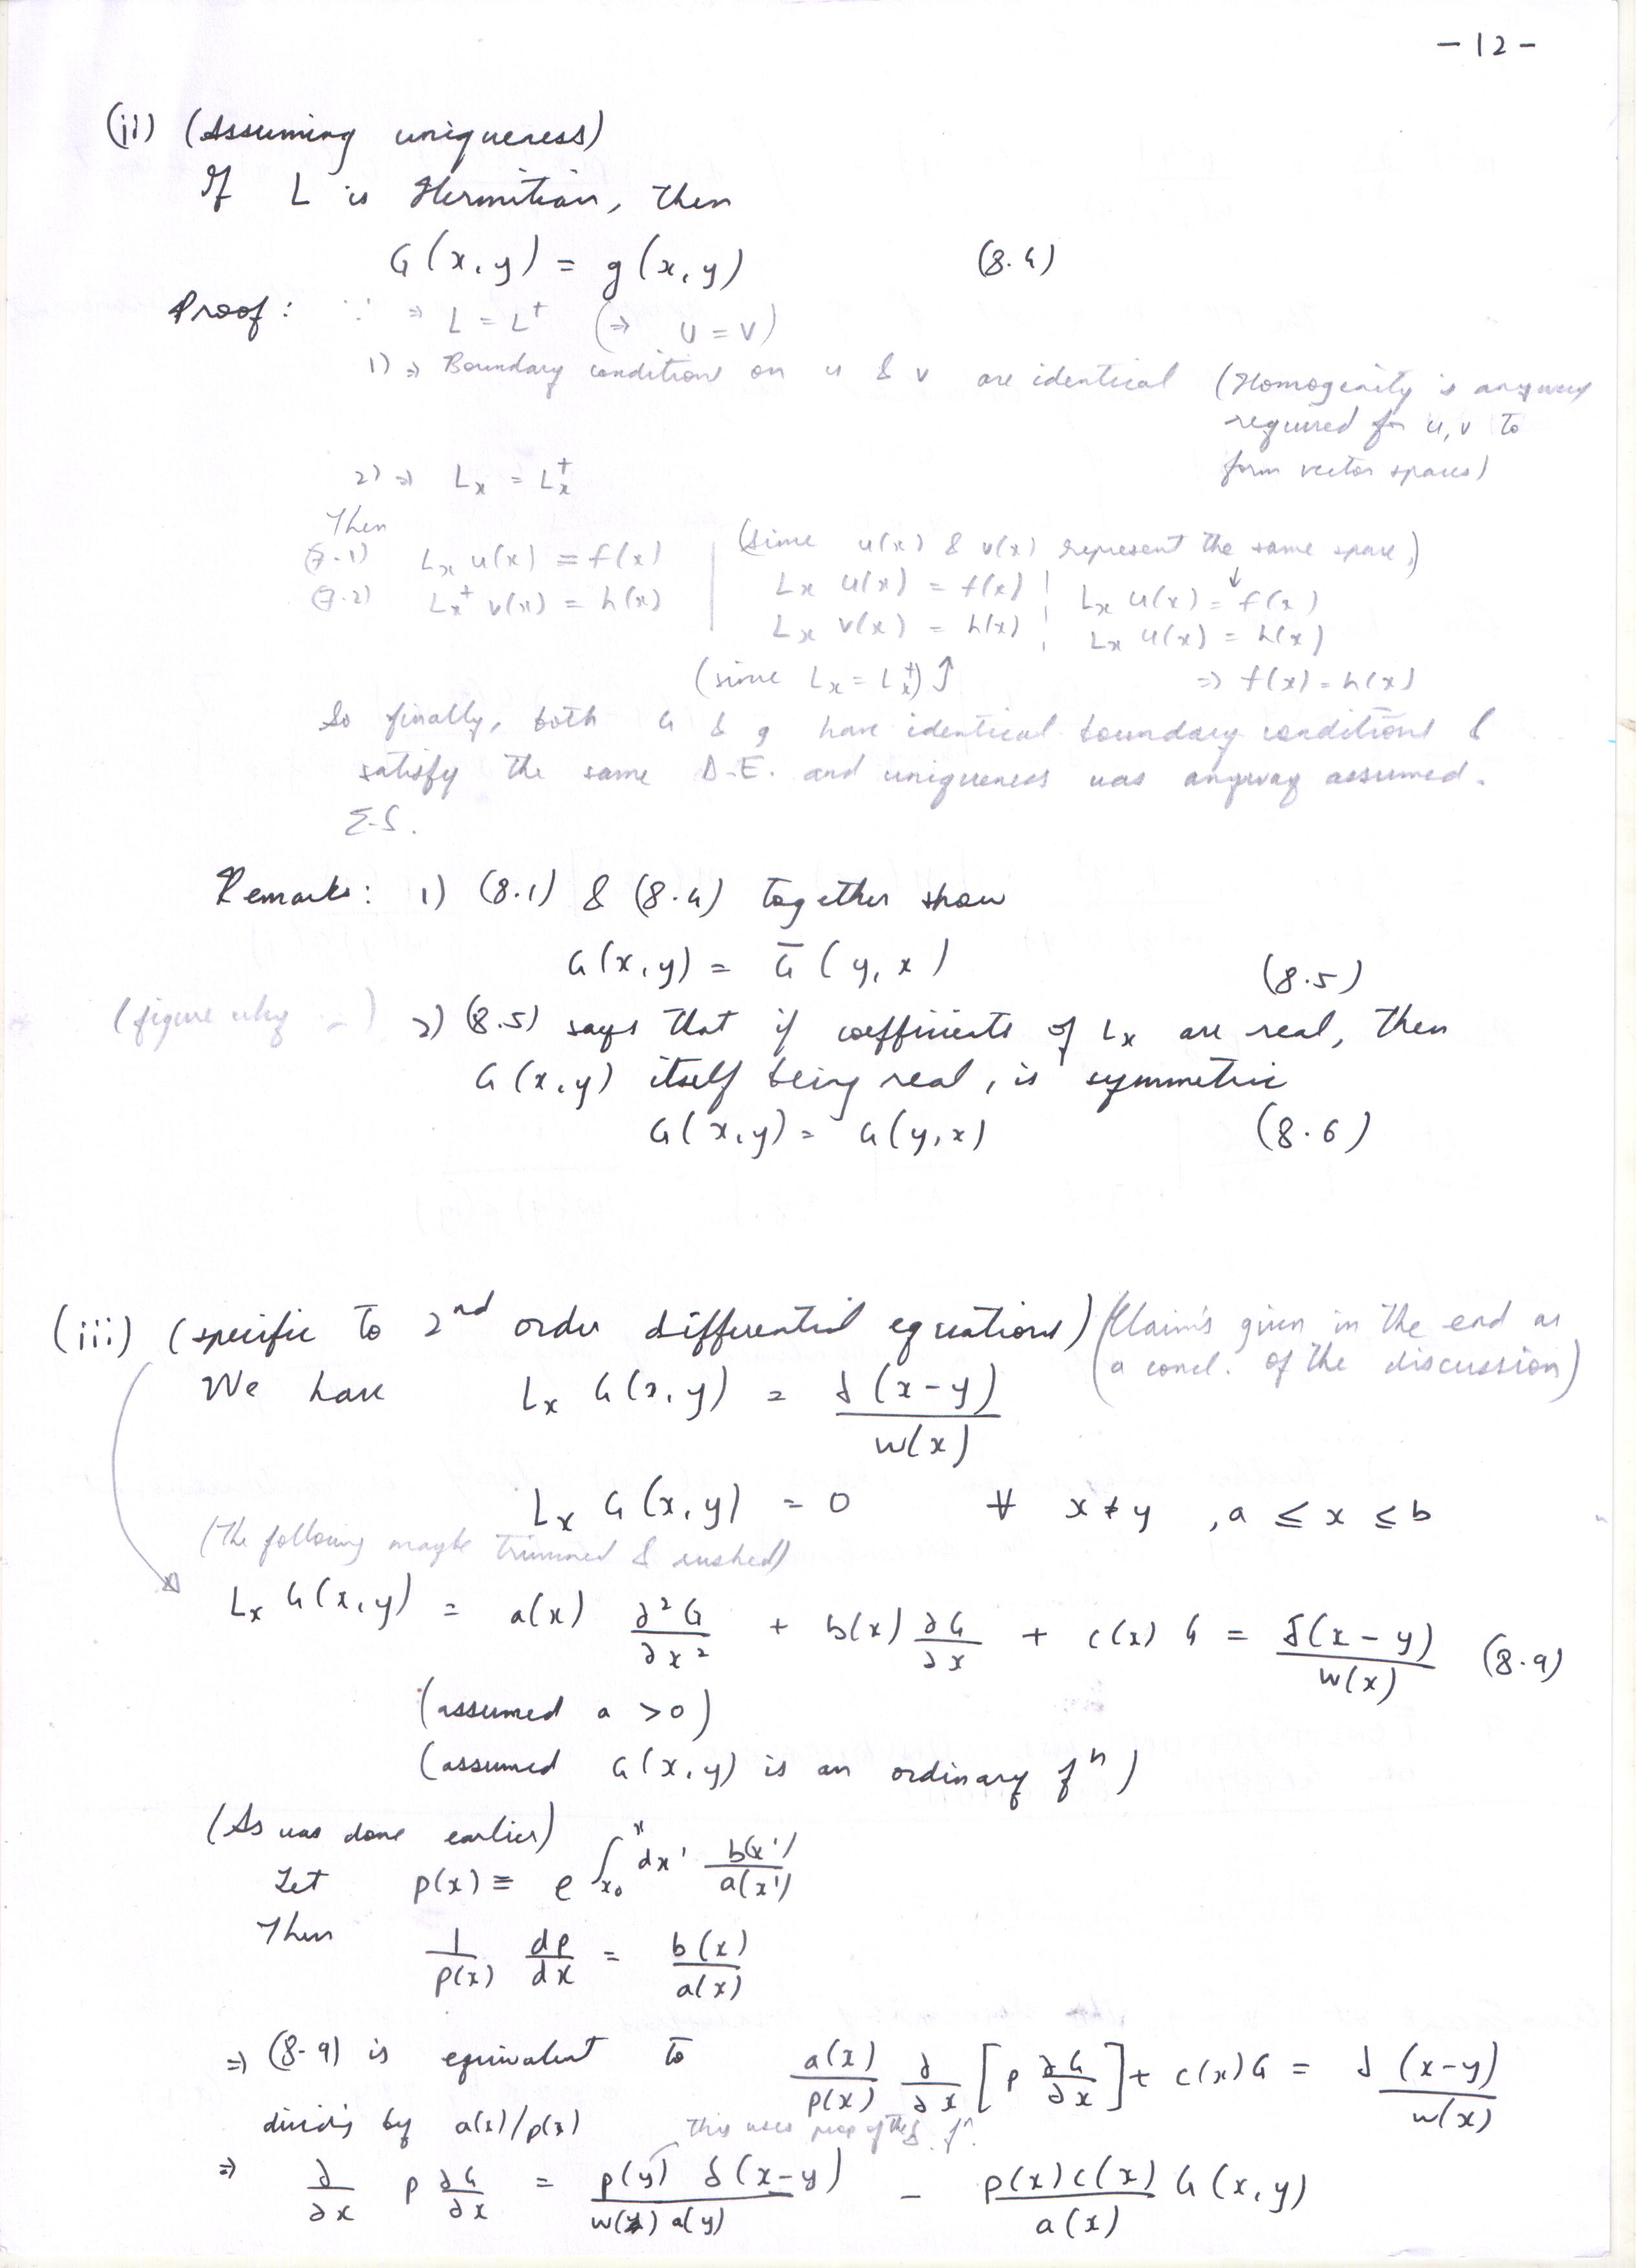 - 12 -
(ii) (Assuming uniqueness)
If L is Hermitian, then
G(x,y) = g(x,y) (8.4)
Proof: ∵ ⇒ L = L† (⇒ U = V)
1) ⇒ Boundary conditions on u & v are identical (Homogenity is anyway
required for u,v to
form vector spaces)
2) ⇒ Lx = Lx†
Then
(7.1) Lx u(x) = f(x)
(7.2) Lx† v(x) = h(x)
(since u(x) & v(x) represent the same space,)
Lx u(x) = f(x) | Lx u(x) = f(x)
Lx v(x) = h(x) | Lx u(x) = h(x)
(since Lx = Lx†) ↑ ⇒ f(x) = h(x)
So finally, both G & g have identical boundary conditions &
satisfy the same D.E. and uniqueness was anyway assumed.
Remarks: 1) (8.1) & (8.4) together show
G(x,y) = Ḡ(y,x) (8.5)
(figure why 2) (8.5) says that if coefficients of Lx are real, then
G(x,y) itself being real, is symmetric
G(x,y) = G(y,x) (8.6)
(iii) (specific to 2nd order differential equations) (Claim's given in the end as
a concl. of the discussion)
We have Lx G(x,y) = δ(x-y)/w(x)
Lx G(x,y) = 0 ∀ x ≠ y , a ≤ x ≤ b
(The following maybe trimmed & rushed)
Lx G(x,y) = a(x) ∂²G/∂x² + b(x) ∂G/∂x + c(x) G = δ(x-y)/w(x) (8.9)
(assumed a > 0)
(assumed G(x,y) is an ordinary fⁿ)
(As was done earlier)
Let p(x) ≡ e ∫x₀^x dx' b(x')/a(x')
Then 1/p(x) dp/dx = b(x)/a(x)
⇒ (8.9) is equivalent to a(x)/p(x) ∂/∂x [p ∂G/∂x] + c(x)G = δ(x-y)/w(x)
dividing by a(x)/p(x) this uses prop of the δ fⁿ.
⇒ ∂/∂x p ∂G/∂x = p(y) δ(x-y)/w(y) a(y) - p(x)c(x)/a(x) G(x,y)